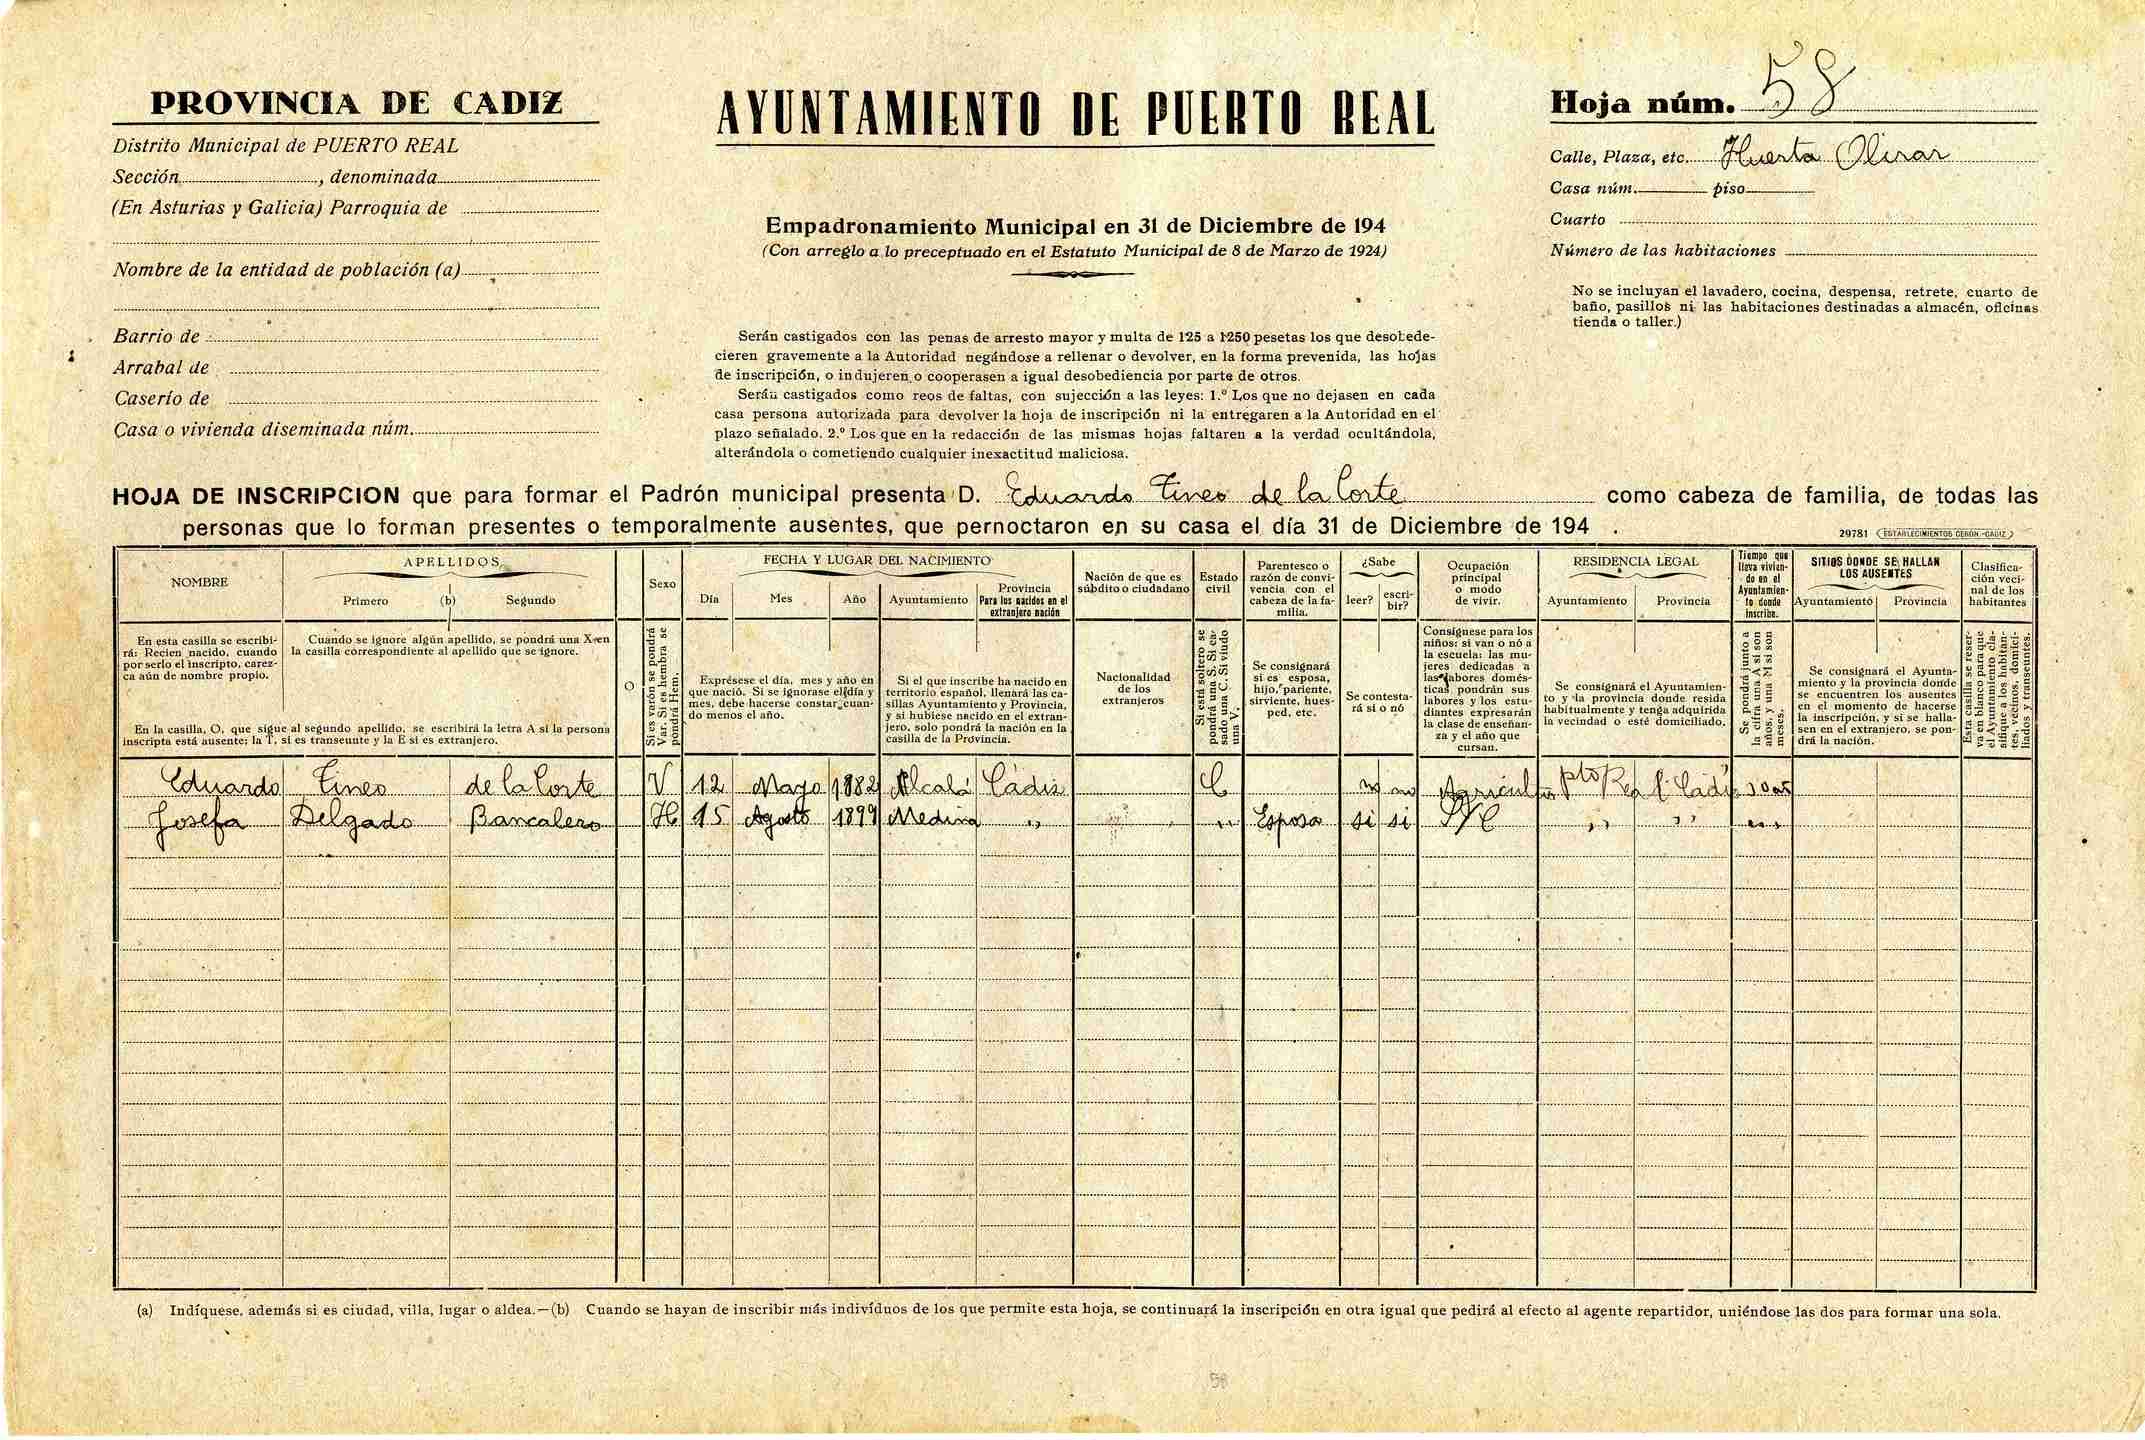 PROVINCIA DE CADIZ
Distrito Municipal de PUERTO REAL
Sección, denominada
(En Asturias y Galicia) Parroquia de
Nombre de la entidad de población (a)
Barrio de
Arrabal de
Caserío de
Casa o vivienda diseminada núm.
AYUNTAMIENTO DE PUERTO REAL
Empadronamiento Municipal en 31 de Diciembre de 194
(Con arreglo a lo preceptuado en el Estatuto Municipal de 8 de Marzo de 1924)
Serán castigados con las penas de arresto mayor y multa de 125 a 1250 pesetas los que desobede-
cieren gravemente a la Autoridad negándose a rellenar o devolver, en la forma prevenida, las hojas
de inscripción, o indujeren o cooperasen a igual desobediencia por parte de otros.
Serán castigados como reos de faltas, con sujección a las leyes: 1.º Los que no dejasen en cada
casa persona autorizada para devolver la hoja de inscripción ni la entregaren a la Autoridad en el
plazo señalado. 2.º Los que en la redacción de las mismas hojas faltaren a la verdad ocultándola,
alterándola o cometiendo cualquier inexactitud maliciosa.
Hoja núm. 58
Calle, Plaza, etc. Huerta Olivar
Casa núm. piso
Cuarto
Número de las habitaciones
No se incluyan el lavadero, cocina, despensa, retrete, cuarto de
baño, pasillos ni las habitaciones destinadas a almacén, oficinas
tienda o taller.)
HOJA DE INSCRIPCION que para formar el Padrón municipal presenta D. Eduardo Tineo de la Corte como cabeza de familia, de todas las
personas que lo forman presentes o temporalmente ausentes, que pernoctaron en su casa el día 31 de Diciembre de 194 .
29781 (ESTABLECIMIENTOS CERÓN.-CADIZ)
NOMBRE
APELLIDOS
Primero (b) Segundo
O
Sexo
FECHA Y LUGAR DEL NACIMIENTO
Día Mes Año Ayuntamiento
Provincia
Para los nacidos en el
extranjero nación
Nación de que es
súbdito o ciudadano
Estado
civil
Parentesco o
razón de convi-
vencia con el
cabeza de la fa-
milia.
¿Sabe
leer? escri-
bir?
Ocupación
principal
o modo
de vivir.
RESIDENCIA LEGAL
Ayuntamiento Provincia
Tiempo que
lleva vivien-
do en el
Ayuntamien-
to donde
inscribe.
SITIOS DONDE SE HALLAN
LOS AUSENTES
Ayuntamiento Provincia
Clasifica-
ción veci-
nal de los
habitantes
En esta casilla se escribi-
rá: Recien nacido, cuando
por serlo el inscripto, carez-
ca aún de nombre propio.
Cuando se ignore algún apellido, se pondrá una X en
la casilla correspondiente al apellido que se ignore.
En la casilla, O, que sigue al segundo apellido, se escribirá la letra A si la persona
inscripta está ausente; la T, si es transeunte y la E si es extranjero.
Si es varón se pondrá
Var. Si es hembra se
pondrá Hem.
Exprésese el día, mes y año en
que nació. Si se ignorase el día y
mes, debe hacerse constar cuan-
do menos el año.
Si el que inscribe ha nacido en
territorio español, llenará las ca-
sillas Ayuntamiento y Provincia,
y si hubiese nacido en el extran-
jero, solo pondrá la nación en la
casilla de la Provincia.
Nacionalidad
de los
extranjeros
Si está soltero se
pondrá una S. Si ca-
sado una C. Si viudo
una V.
Se consignará
si es esposa,
hijo, pariente,
sirviente, hues-
ped, etc.
Se contesta-
rá si o nó
Consígnese para los
niños: si van o nó a
la escuela; las mu-
jeres dedicadas a
las labores domés-
ticas pondrán sus
labores y los estu-
diantes expresarán
la clase de enseñan-
za y el año que
cursan.
Se consignará el Ayuntamien-
to y la provincia donde resida
habitualmente y tenga adquirida
la vecindad o esté domiciliado.
Se pondrá junto a
la cifra una A si son
años, y una M si son
meses.
Se consignará el Ayunta-
miento y la provincia donde
se encuentren los ausentes
en el momento de hacerse
la inscripción, y si se halla-
sen en el extranjero, se pon-
drá la nación.
Esta casilla se reser-
va en blanco para que
el Ayuntamiento cla-
sifique a los habitan-
tes, vecinos, domici-
liados y transeuntes.
Eduardo Tineo de la Corte V 12 Mayo 1882 Alcalá Cádiz C no no Agricultor Pto Real Cádiz
Josefa Delgado Bancalero H 15 Agosto 1899 Medina " " Esposa si si " " "
(a) Indíquese, además si es ciudad, villa, lugar o aldea.—(b) Cuando se hayan de inscribir más individuos de los que permite esta hoja, se continuará la inscripción en otra igual que pedirá al efecto al agente repartidor, uniéndose las dos para formar una sola.
58